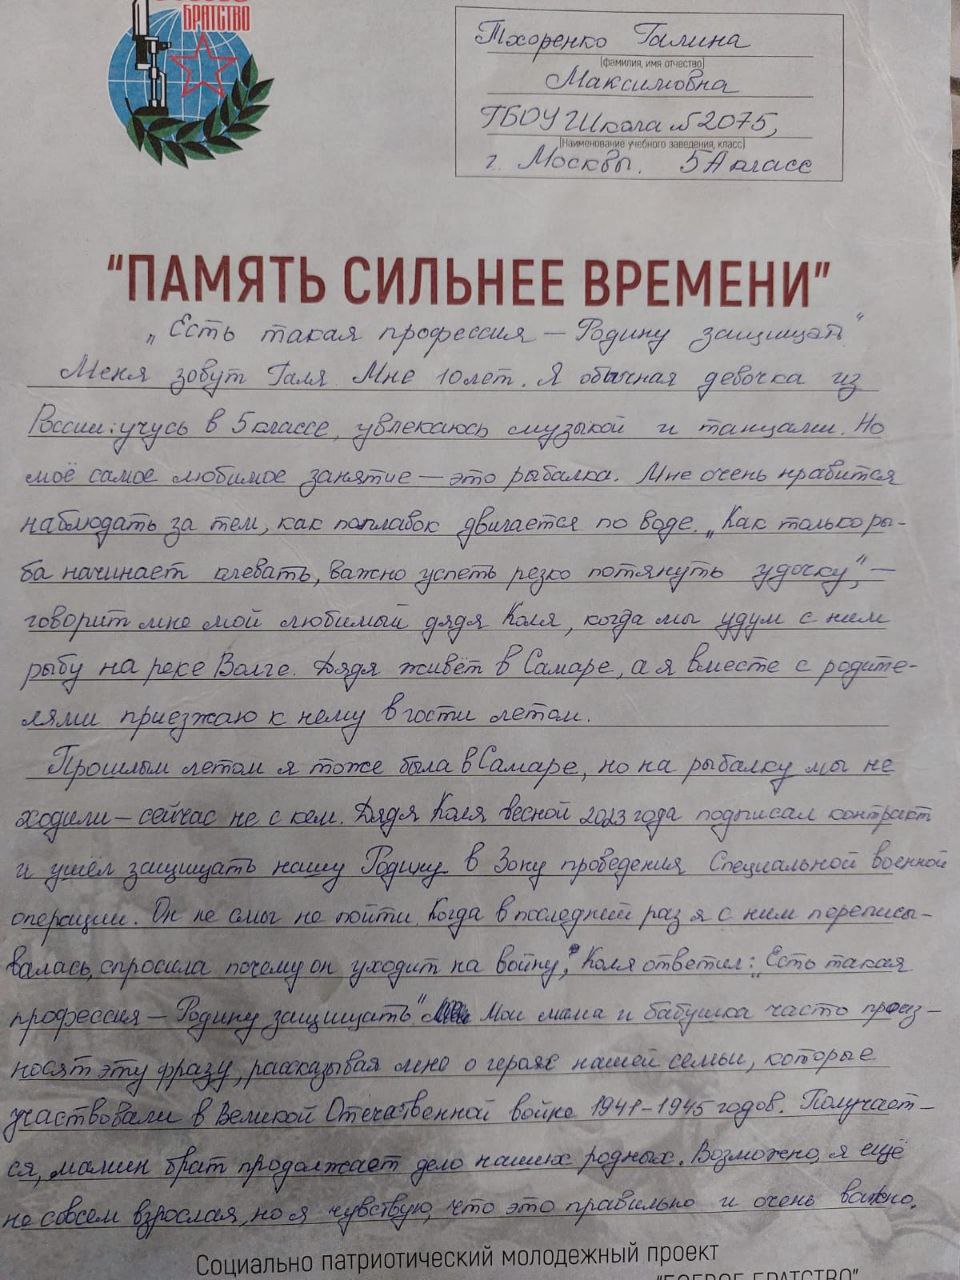 БРАТСТВО
Тхоренко Галина
(фамилия, имя отчество)
Максимовна
ГБОУ Школа №2075,
(Наименование учебного заведения, класс)
г. Москвы. 5А класс
"ПАМЯТЬ СИЛЬНЕЕ ВРЕМЕНИ"
„Есть такая профессия — Родину защищать"
Меня зовут Галя. Мне 10 лет. Я обычная девочка из
России: учусь в 5 классе, увлекаюсь музыкой и танцами. Но
моё самое любимое занятие — это рыбалка. Мне очень нравится
наблюдать за тем, как поплавок двигается по воде. „Как только ры-
ба начинает клевать, важно успеть резко потянуть удочку", —
говорит мне мой любимый дядя Коля, когда мы удим с ним
рыбу на реке Волге. Дядя живёт в Самаре, а я вместе с родите-
лями приезжаю к нему в гости летом.
Прошлым летом я тоже была в Самаре, но на рыбалку мы не
ходили — сейчас не с кем. Дядя Коля весной 2023 года подписал контракт
и ушёл защищать нашу Родину в Зону проведения Специальной военной
операции. Он не смог не пойти. Когда в последний раз я с ним переписы-
валась, спросила почему он уходит на войну, Коля ответил: „Есть такая
профессия — Родину защищать" Мои мама и бабушка часто произ-
носят эту фразу, рассказывая мне о героях нашей семьи, которые
участвовали в Великой Отечественной войне 1941-1945 годов. Получает-
ся, мамин брат продолжает дело наших родных. Возможно, я ещё
не совсем взрослая, но я чувствую, что это правильно и очень важно.
Социально патриотический молодежный проект
"БОЕВОЕ БРАТСТВО"